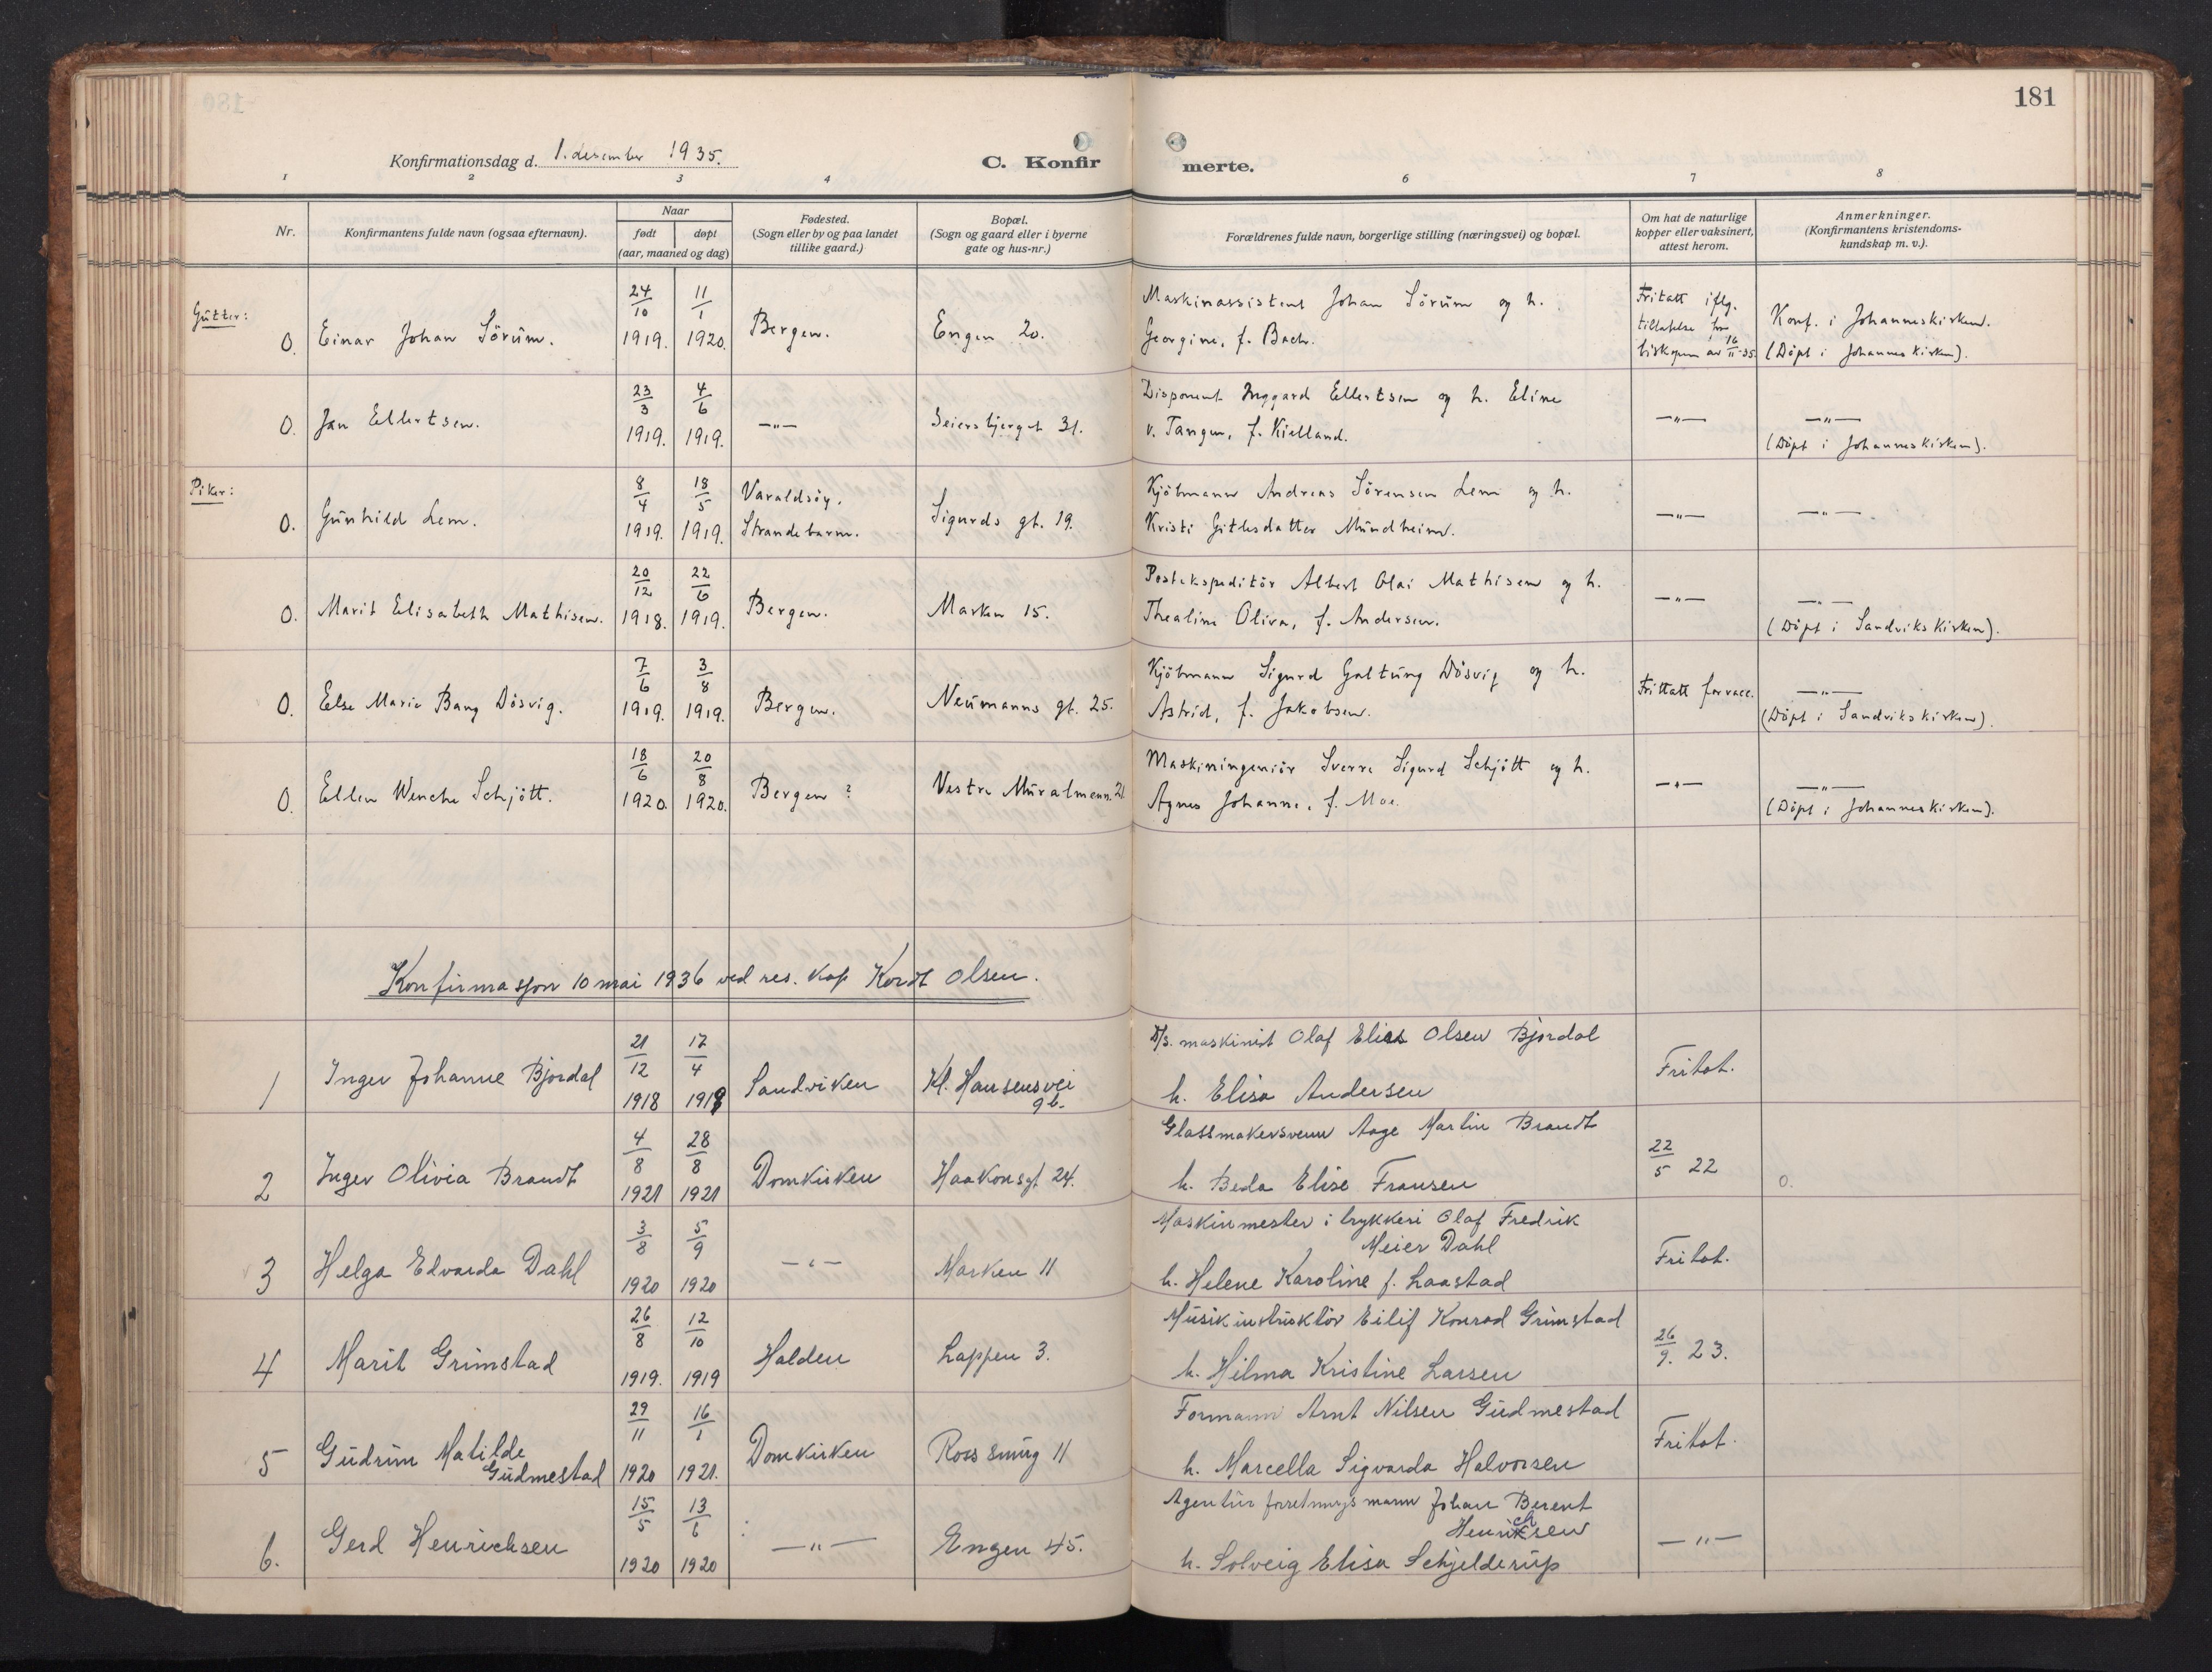 181
Konfirmationsdag d. 1. desember 1935.
C. Konfirmerte.
1 2 3 4 6 7 8
Nr.
Konfirmantens fulde navn (ogsaa efternavn).
Naar
født døpt
(aar, maaned og dag)
Fødested.
(Sogn eller by og paa landet
tillike gaard.)
Bopæl.
(Sogn og gaard eller i byerne
gate og hus-nr.)
Forældrenes fulde navn, borgerlige stilling (næringsvei) og bopæl.
Om hat de naturlige
kopper eller vaksinert,
attest herom.
Anmerkninger.
(Konfirmantens kristendoms-
kundskap m. v.).
Gutter:
0. Einar Johan Sörum.
24/10 1919. 11/1 1920.
Bergen.
Engen 20.
Maskinassistent Johan Sörum og h.
Georgine, f. Bach.
Fritatt iflg.
tillatelse fra
biskopen av 16/11-35.
Konf. i Johanneskirken.
(Döpt i Johanneskirken).
0. Jan Ellertsen.
23/3 1919. 4/6 1919.
—"—
Seiersbjerget 31.
Disponent Inggard Ellertsen og h. Eline
v. Tangen, f. Kielland.
—"—
—"—
(Döpt i Johanneskirken).
Piker:
0. Gunhild Lem.
8/4 1919. 18/5 1919.
Varaldsöy.
Strandebarm.
Sigurds gt. 19.
Kjöbmann Andreas Sörensen Lem og h.
Kristi Gitlesdatter Mundheim.
—"—
—"—
0. Marit Elisabeth Mathisen.
20/12 1918. 22/6 1919.
Bergen.
Marken 15.
Postekspeditör Albert Olai Mathisen og h.
Thealine Oliva, f. Andersen.
—"—
—"—
(Döpt i Sandvikskirken).
0. Else Marie Bang Dösvig.
7/6 1919. 3/8 1919.
Bergen.
Neumanns gt. 25.
Kjöbmann Sigurd Galtung Dösvig og h.
Astrid, f. Jakobsen.
Frittatt for vacc.
—"—
(Döpt i Sandvikskirken).
0. Ellen Wenche Schjött.
18/6 1920. 20/8 1920.
Bergen?
Vestre Muralmenn. 21
Maskiningeniör Sverre Sigurd Schjött og h.
Agnes Johanne, f. Moe.
—"—
—"—
(Döpt i Johanneskirken).
Konfirmasjon 10 mai 1936 ved res. kap Kordt Olsen.
1 Inger Johanne Bjordal
21/12 1918 17/4 1919
Sandviken
Kl. Hansensvei
9 b.
D/s. maskinist Olaf Elias Olsen Bjordal
h. Elisa Andersen
Fritat.
2 Inger Olivia Brandt
4/8 1921 28/8 1921
Domkirken
Haakonsgt. 24.
Glassmakersvenn Aage Martin Brandt
h. Beda Elise Fransen
22/5 22
0.
3 Helga Edvarda Dahl
3/8 1920 5/9 1920
—"—
Marken 11
Maskinmester i trykkeri Olaf Fredrik
Meier Dahl
h. Helene Karoline f. Laastad
Fritat.
4 Marit Grimstad
26/8 1919. 12/10 1919
Halden
Lappen 3.
Musikinstruktör Eilif Konrad Grimstad
h. Hilma Kristine Larsen
26/9. 23.
5 Gudrun Matilde
Gudmestad
29/11 1920 16/1 1921.
Domkirken
Rossmug 11
Formann Arnt Nilsen Gudmestad
h. Marcella Sigvarda Halvorsen
Fritat.
6. Gerd Henrichsen
15/5 1920 13/6 1920
—"—
Engen 45.
Agentur forretningsmann Johan Berent
Henrichsen
h. Solveig Elisa Schjelderup
—"—